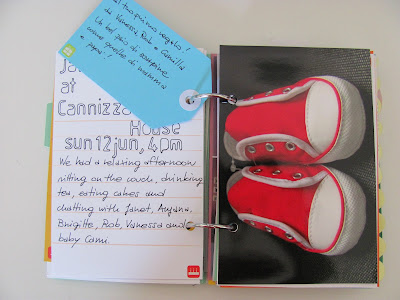 primo regalo!
da Vanessa, Rob e Camilla
Un bel paio di scarpine
come quelle di mamma
e papà!
Ja
at
Cannizza
House
sun 12 jun, 4pm
We had a relaxing afternoon
sitting on the couch, drinking
tea, eating cakes and
chatting with Janet,
Brigitte, Rob, Vanessa and
baby Cami.